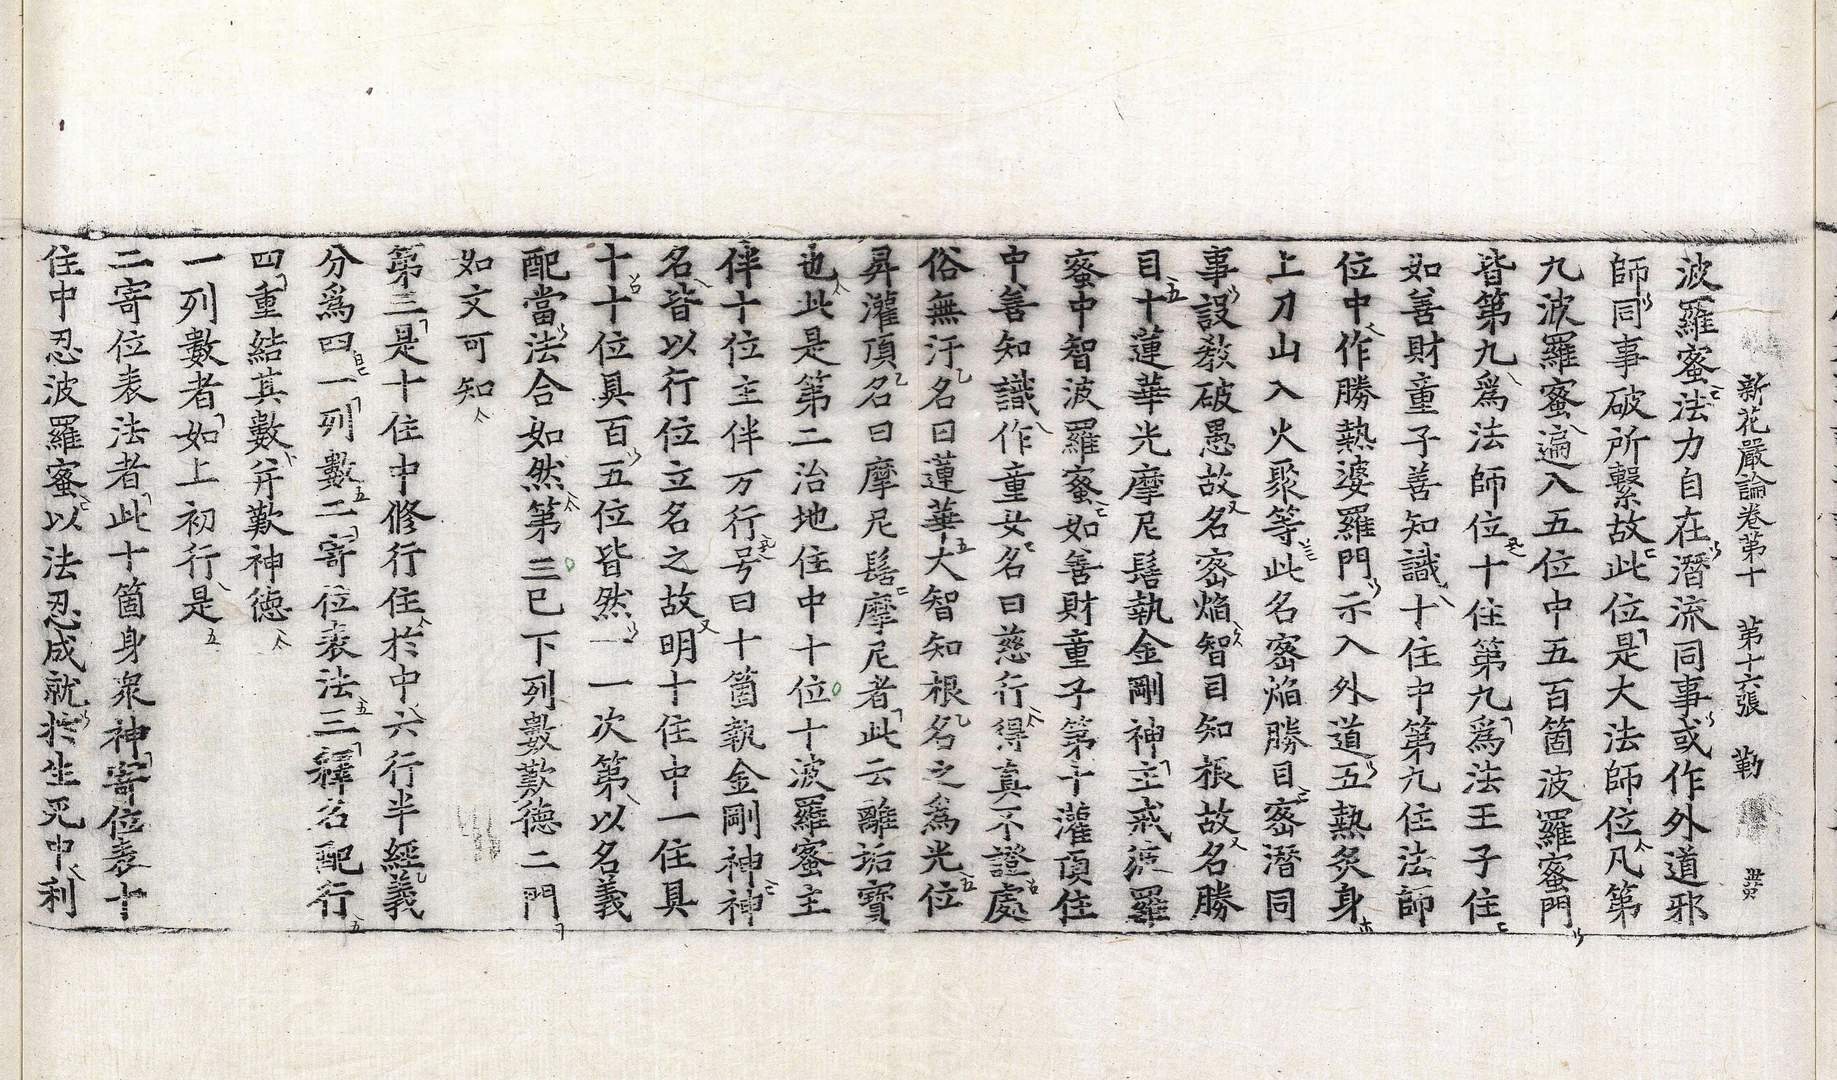 新花嚴論卷第十　第十六張　勤
波羅蜜法力自在潛流同事或作外道邪
師同事破所繫故此位是大法師位凡第
九波羅蜜遍入五位中五百箇波羅蜜門
皆第九爲法師位十住第九爲法王子住
如善財童子善知識十住中第九住法師
位中作勝熱婆羅門示入外道五熱炙身
上刀山入火聚等此名密焰勝目密潛同
事設教破愚故名密焰智目知根故名勝
目十蓮華光摩尼髻執金剛神主戒波羅
蜜中智波羅蜜如善財童子第十灌頂住
中善知識作童女名曰慈行得真不證處
俗無汙名曰蓮華大智知根名之爲光位
昇灌頂名曰摩尼髻摩尼者此云離垢寶
也此是第二治地住中十位十波羅蜜主
伴十位主伴万行号曰十箇執金剛神神
名皆以行位立名之故明十住中一住具
十十位具百五位皆然一一次第以名義
配當法合如然第三已下列數歎德二門
如文可知
第三是十住中修行住於中六行半經義
分爲四一列數二寄位表法三釋名配行
四重結其數并歎神德
一列數者如上初行是
二寄位表法者此十箇身衆神寄位表十
住中忍波羅蜜以法忍成就於生死中利